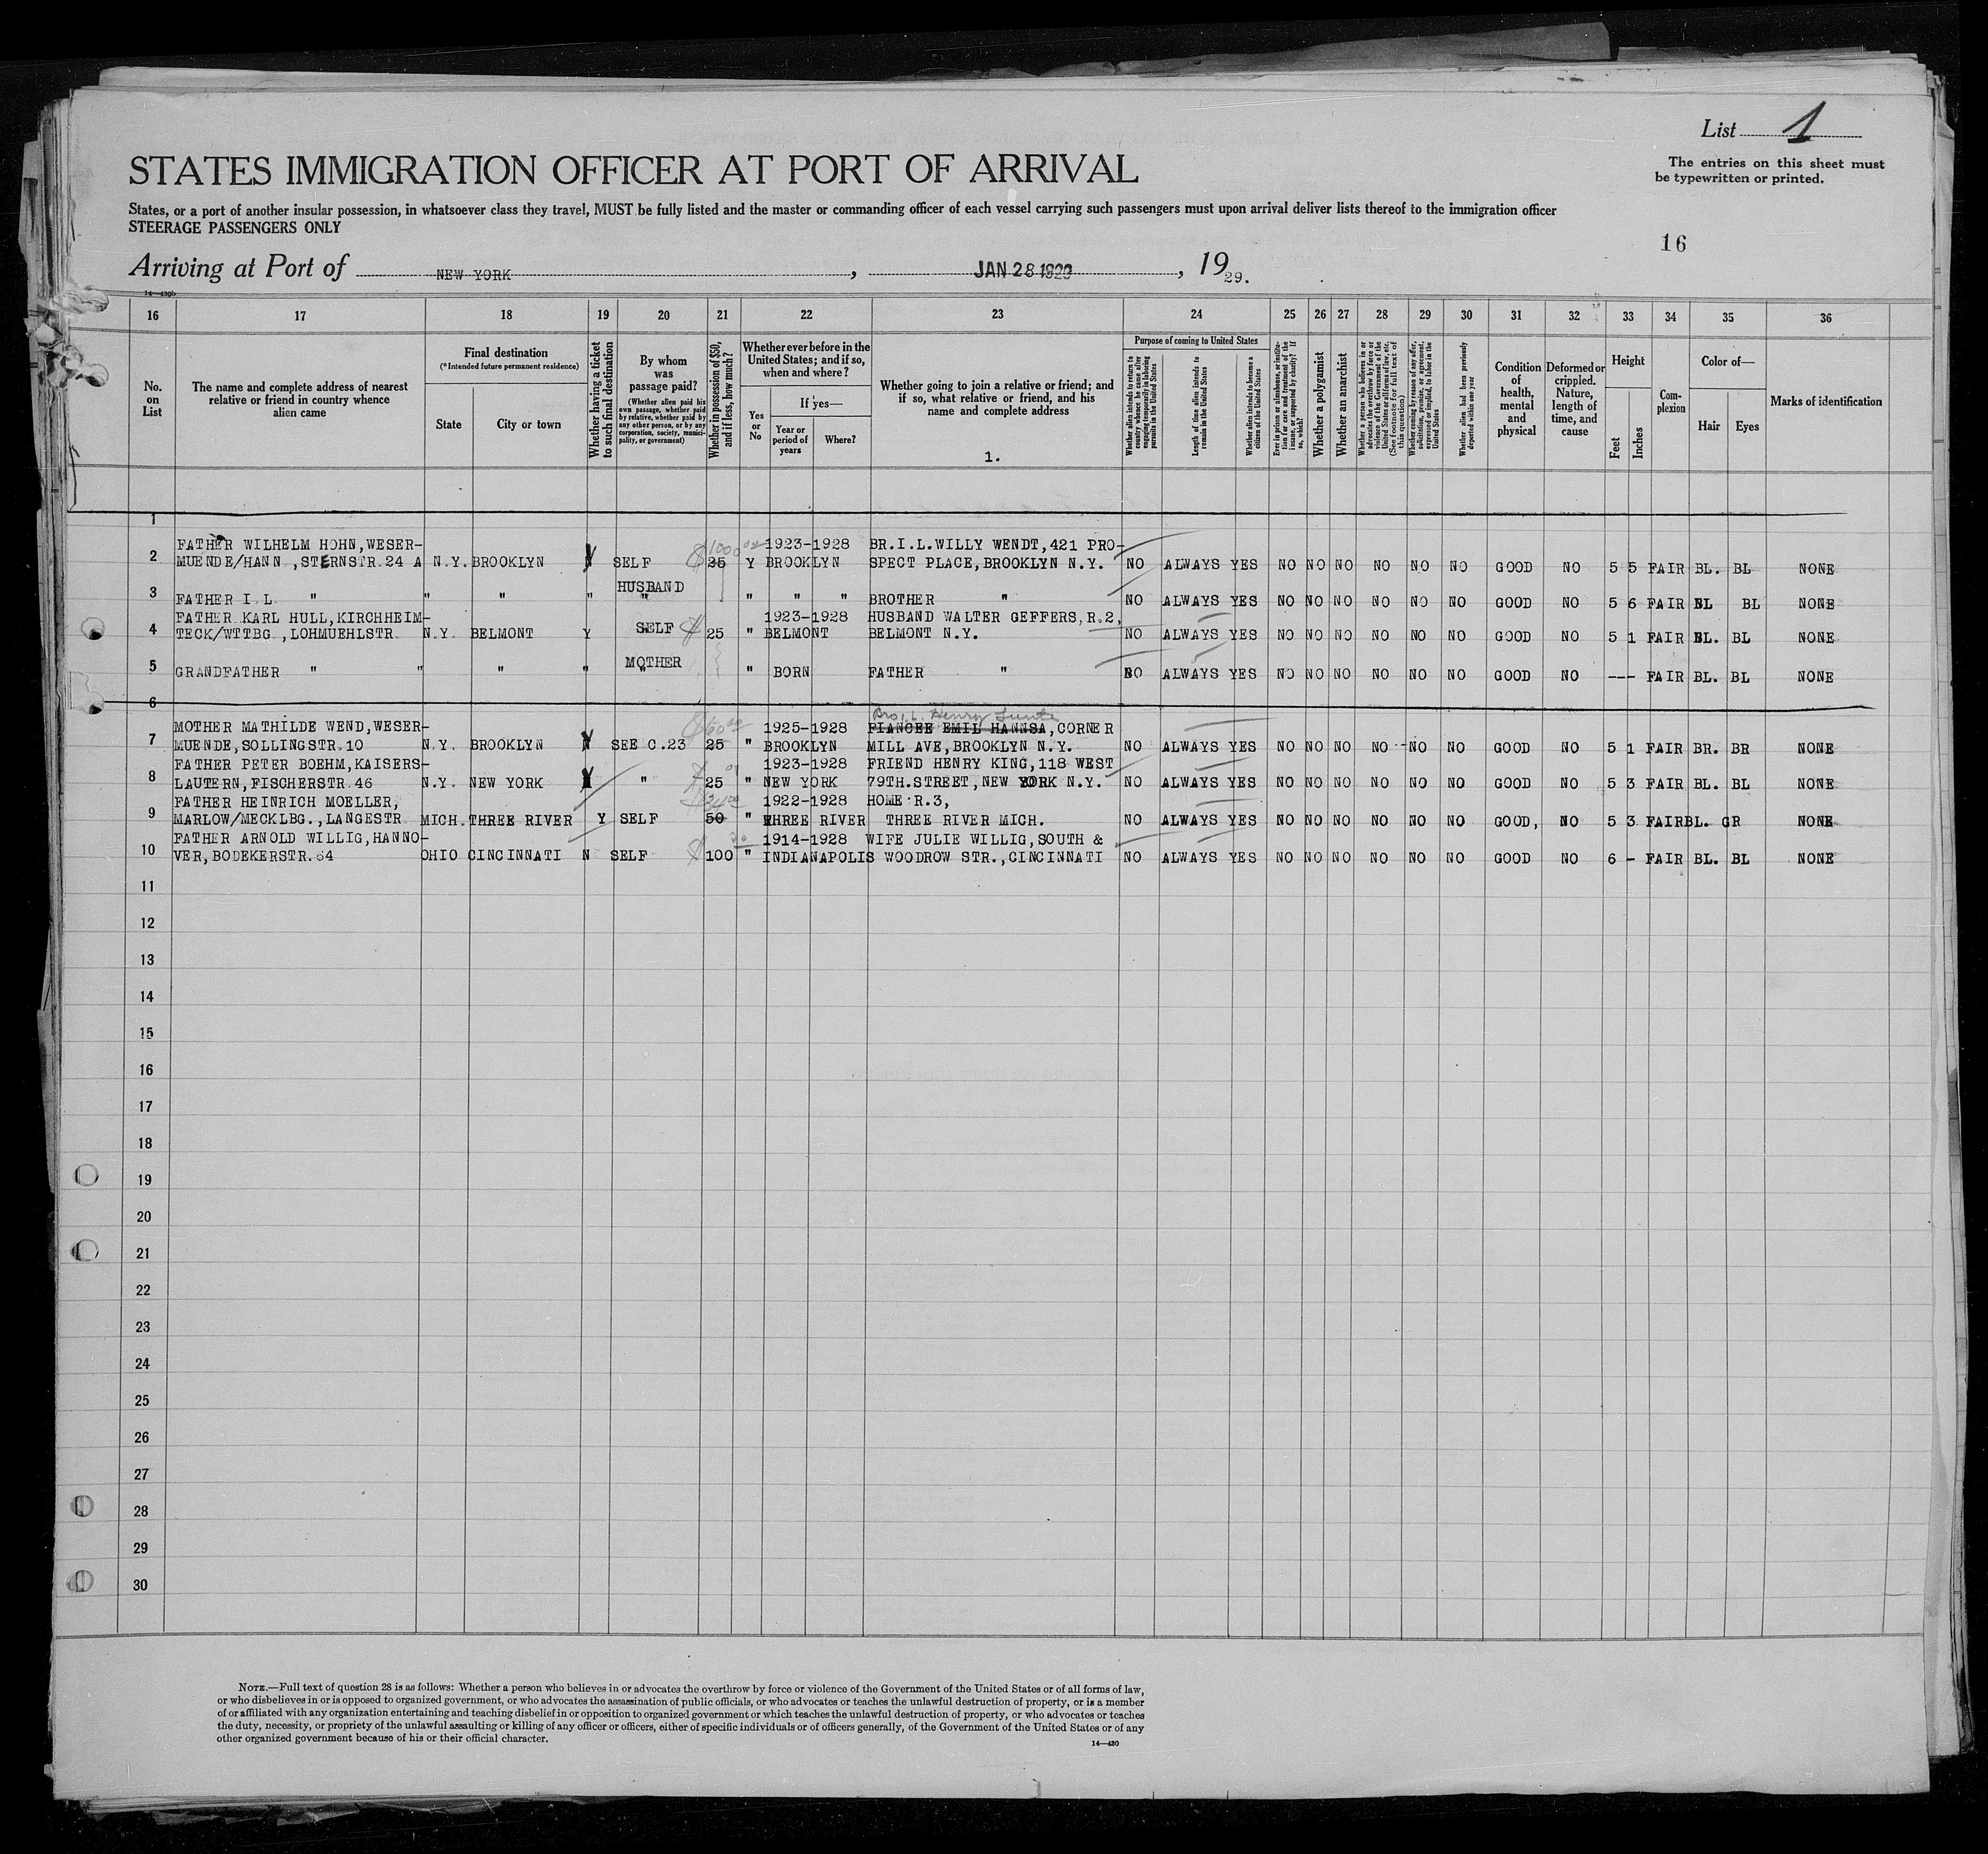 List 1
The entries on this sheet must
be typewritten or printed.
STATES IMMIGRATION OFFICER AT PORT OF ARRIVAL
States, or a port of another insular possession, in whatsoever class they travel, MUST be fully listed and the master or commanding officer of each vessel carrying such passengers must upon arrival deliver lists thereof to the immigration officer
STEERAGE PASSENGERS ONLY
16
Arriving at Port of NEW YORK, JAN 28 1929, 1929.
14—430b
16 17 18 19 20 21 22 23 24 25 26 27 28 29 30 31 32 33 34 35 36
No. on List
The name and complete address of nearest relative or friend in country whence alien came
Final destination
(*Intended future permanent residence)
State
City or town
Whether having a ticket to such final destination
By whom was passage paid?
(Whether alien paid his own passage, whether paid by relative, whether paid by any other person, or by any corporation, society, municipality, or government)
Whether in possession of $50, and if less, how much?
Whether ever before in the United States; and if so, when and where?
Yes or No
If yes—
Year or period of years
Where?
Whether going to join a relative or friend; and if so, what relative or friend, and his name and complete address
1.
Purpose of coming to United States
Whether alien intends to return to country whence he came after engaging temporarily in laboring pursuits in the United States
Length of time alien intends to remain in the United States
Whether alien intends to become a citizen of the United States
Ever in prison or almshouse, or institution for care and treatment of the insane, or supported by charity? If so, which?
Whether a polygamist
Whether an anarchist
Whether a person who believes in or advocates the overthrow by force or violence of the Government of the United States or all forms of law, etc. (See footnote for full text of this question)
Whether coming by reason of any offer, solicitation, promise, or agreement, expressed or implied, to labor in the United States
Whether alien had been previously deported within one year
Condition of health, mental and physical
Deformed or crippled. Nature, length of time, and cause
Height
Feet
Inches
Complexion
Color of—
Hair
Eyes
Marks of identification
1
FATHER WILHELM HOHN, WESER- $1000 1923-1928 BR.I.L.WILLY WENDT, 421 PRO-
2 MUENDE/HANN., STERNSTR.24 A N.Y. BROOKLYN SELF 25 Y BROOKLYN SPECT PLACE, BROOKLYN N.Y. NO ALWAYS YES NO NO NO NO NO NO GOOD NO 5 5 FAIR BL. BL NONE
HUSBAND
3 FATHER I L " " " " " " " " BROTHER " NO ALWAYS YES NO NO NO NO NO NO GOOD NO 5 6 FAIR BL BL NONE
FATHER KARL HULL, KIRCHHEIM- 1923-1928 HUSBAND WALTER GEFFERS, R.2,
4 TECK/WTTBG., LOHMUEHLSTR. N.Y. BELMONT Y SELF $ 25 " BELMONT BELMONT N.Y. NO ALWAYS YES NO NO NO NO NO NO GOOD NO 5 1 FAIR BL. BL NONE
MOTHER
5 GRANDFATHER " " " " " " BORN FATHER " NO ALWAYS YES NO NO NO NO NO NO GOOD NO --- FAIR BL. BL NONE
6
Bro. i. L. Henry
MOTHER MATHILDE WEND, WESER- $60 1925-1928 FIANCEE EMIL HANNSA, CORNER
7 MUENDE, SOLLINGSTR.10 N.Y. BROOKLYN SEE C.23 25 " BROOKLYN MILL AVE, BROOKLYN N.Y. NO ALWAYS YES NO NO NO NO NO NO GOOD NO 5 1 FAIR BR. BR NONE
FATHER PETER BOEHM, KAISERS- 1923-1928 FRIEND HENRY KING, 118 WEST
8 LAUTERN, FISCHERSTR 46 N.Y. NEW YORK " 25 " NEW YORK 79TH.STREET, NEW YORK N.Y. NO ALWAYS YES NO NO NO NO NO NO GOOD NO 5 3 FAIR BL. BL NONE
FATHER HEINRICH MOELLER, 1922-1928 HOME R.3,
9 MARLOW/MECKLBG., LANGESTR MICH. THREE RIVER Y SELF 50 " THREE RIVER THREE RIVER MICH. NO ALWAYS YES NO NO NO NO NO NO GOOD, NO 5 3 FAIR BL. GR NONE
FATHER ARNOLD WILLIG, HANNO- 1914-1928 WIFE JULIE WILLIG, SOUTH &
10 VER, BODEKERSTR.64 OHIO CINCINNATI N SELF $ 100 " INDIANAPOLIS WOODROW STR., CINCINNATI NO ALWAYS YES NO NO NO NO NO NO GOOD NO 6 - FAIR BL. BL NONE
11
12
13
14
15
16
17
18
19
20
21
22
23
24
25
26
27
28
29
30
NOTE.—Full text of question 28 is as follows: Whether a person who believes in or advocates the overthrow by force or violence of the Government of the United States or of all forms of law,
or who disbelieves in or is opposed to organized government, or who advocates the assassination of public officials, or who advocates or teaches the unlawful destruction of property, or is a member
of or affiliated with any organization entertaining and teaching disbelief in or opposition to organized government or which teaches the unlawful destruction of property, or who advocates or teaches
the duty, necessity, or propriety of the unlawful assaulting or killing of any officer or officers, either of specific individuals or of officers generally, of the Government of the United States or of any
other organized government because of his or their official character.
14—430